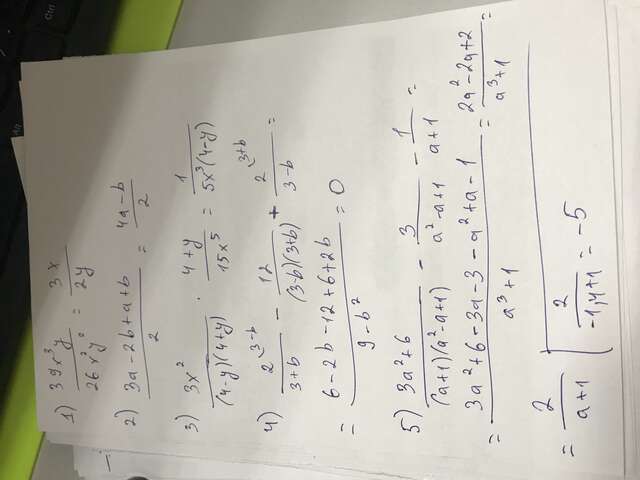 1) 39x³y / 26x²y² = 3x / 2y
2) 3a-2b+a+b / 2 = 4a-b / 2
3) 3x² / (4-y)(4+y) · 4+y / 15x⁵ = 1 / 5x³(4-y)
4) 2^(3-b) / 3+b - 12 / (3-b)(3+b) + 2^(3+b) / 3-b =
= 6-2b-12+6+2b / 9-b² = 0
5) 3a²+6 / (a+1)(a²-a+1) - 3 / a²-a+1 - 1 / a+1 =
= 3a²+6-3a-3-a²+a-1 / a³+1 = 2a²-2a+2 / a³+1 =
= 2 / a+1 | 2 / -1,4+1 = -5